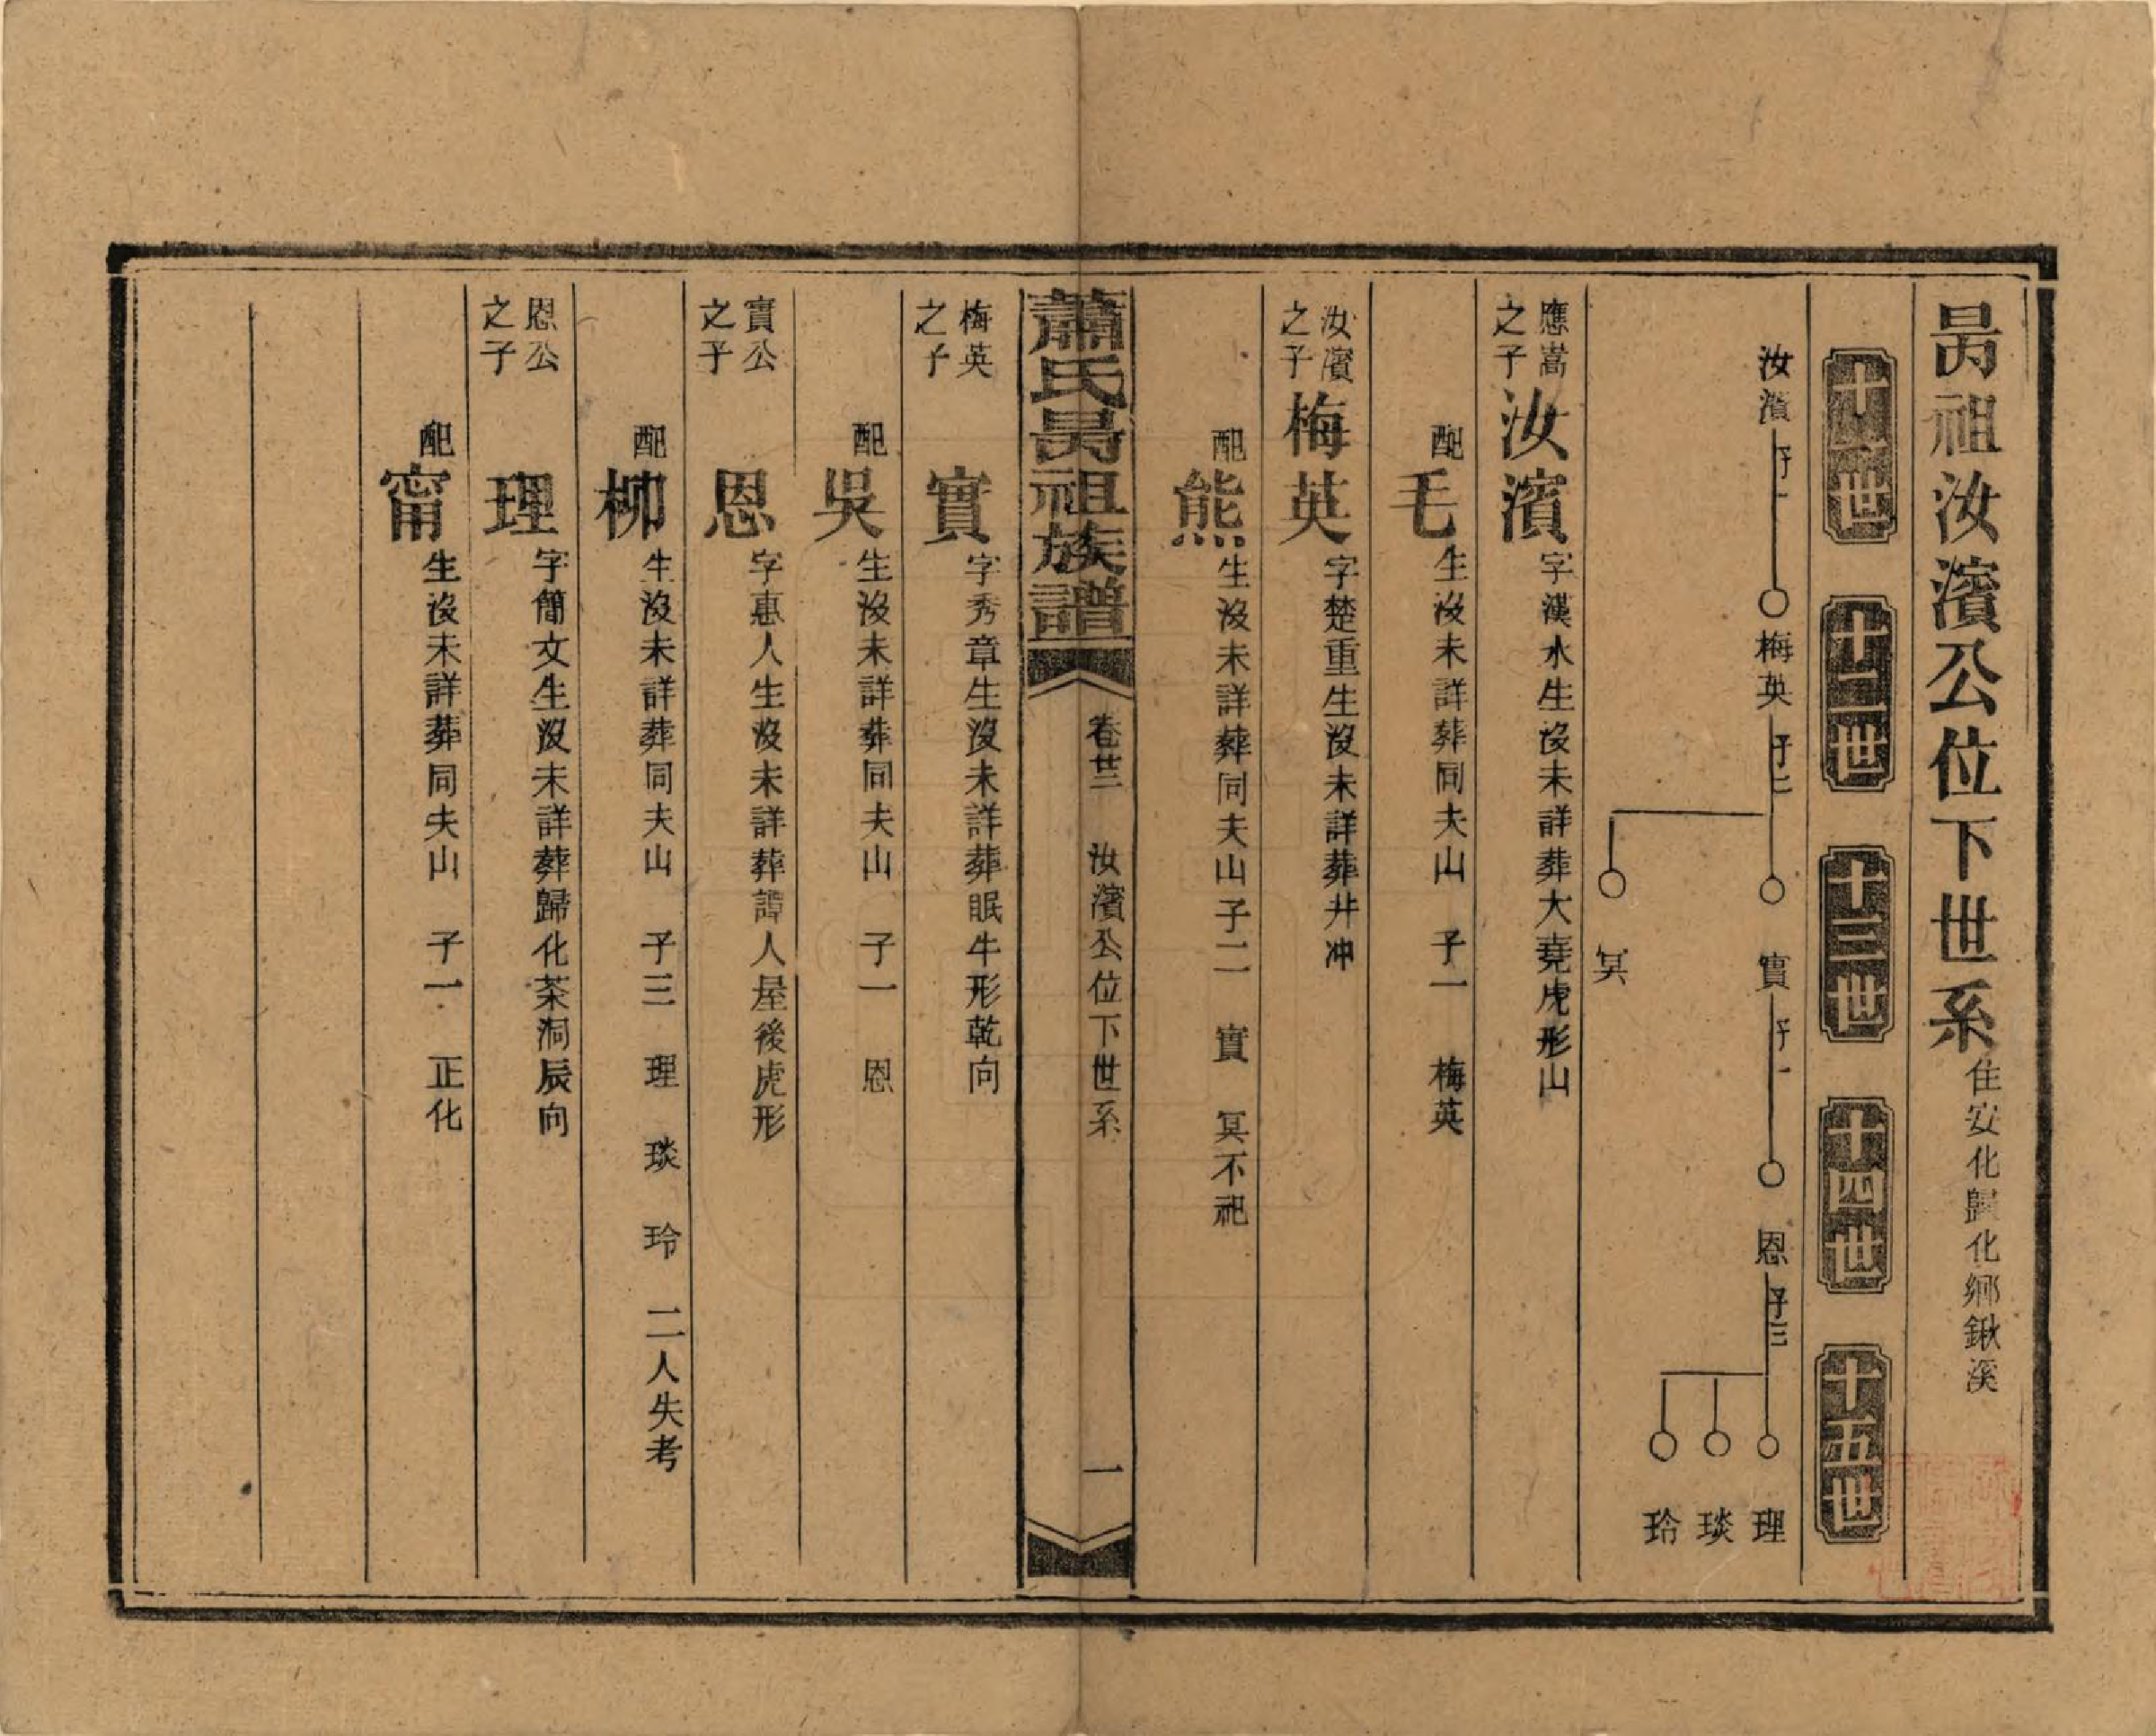 昺祖汝濱公位下世系 住安化歸化鄉鍬溪
十一世 十二世 十三世 十四世 十五世
汝濱 子一 梅英 子二 實 子一 恩 子三 理
琰
玲
冥
應嵩之子 汝濱 字漢水生沒未詳葬大堯虎形山
配 毛 生沒未詳葬同夫山 子一 梅英
汝濱之子 梅英 字楚重生沒未詳葬井冲
配 熊 生沒未詳葬同夫山子二 實 冥不祀
蕭氏昺祖族譜 卷廿三 汝濱公位下世系 一
梅英之子 實 字秀章生沒未詳葬眠牛形乾向
配 吳 生沒未詳葬同夫山 子一 恩
實公之子 恩 字惠人生沒未詳葬譚人屋後虎形
配 柳 生沒未詳葬同夫山 子三 理 琰 玲 二人失考
恩公之子 理 字簡文生沒未詳葬歸化茶洞辰向
配 甯 生沒未詳葬同夫山 子一 正化